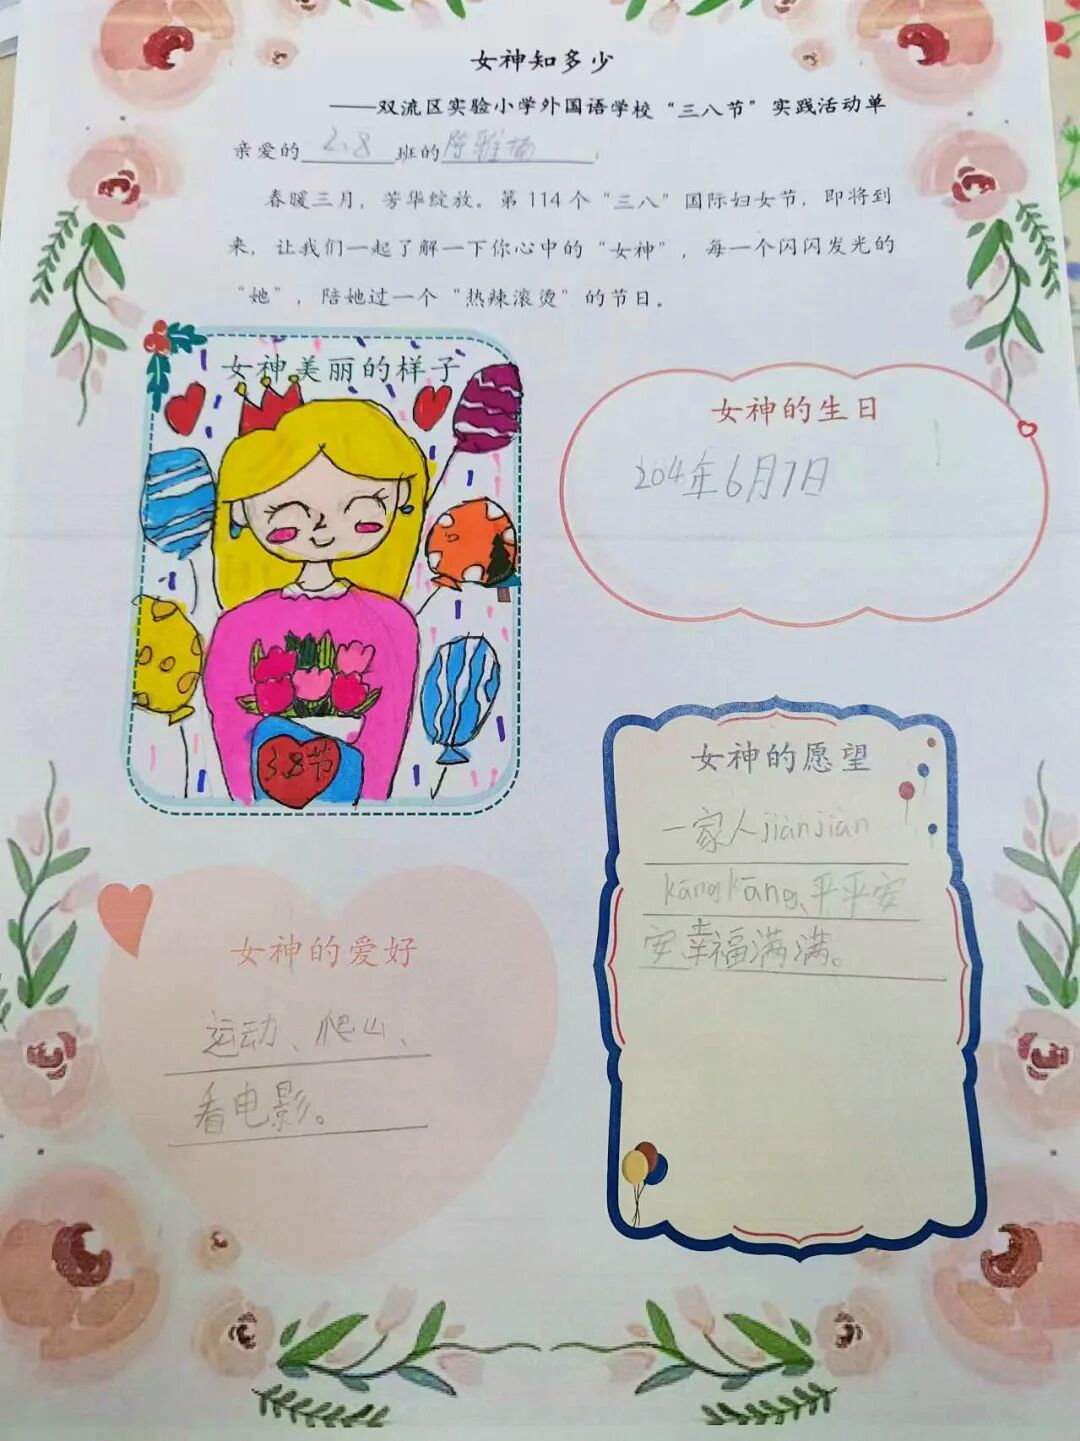 女神知多少
——双流区实验小学外国语学校“三八节”实践活动单
亲爱的 2.8 班的陈雅楠:
春暖三月，芳华绽放。第114个“三八”国际妇女节，即将到
来，让我们一起了解一下你心中的“女神”，每一个闪闪发光的
“她”，陪她过一个“热辣滚烫”的节日。
女神美丽的样子
3.8节
女神的生日
204年6月7日
女神的愿望
一家人jiànjiàn
kāngkāng、平平安
安幸福满满。
女神的爱好
运动、爬山、
看电影。